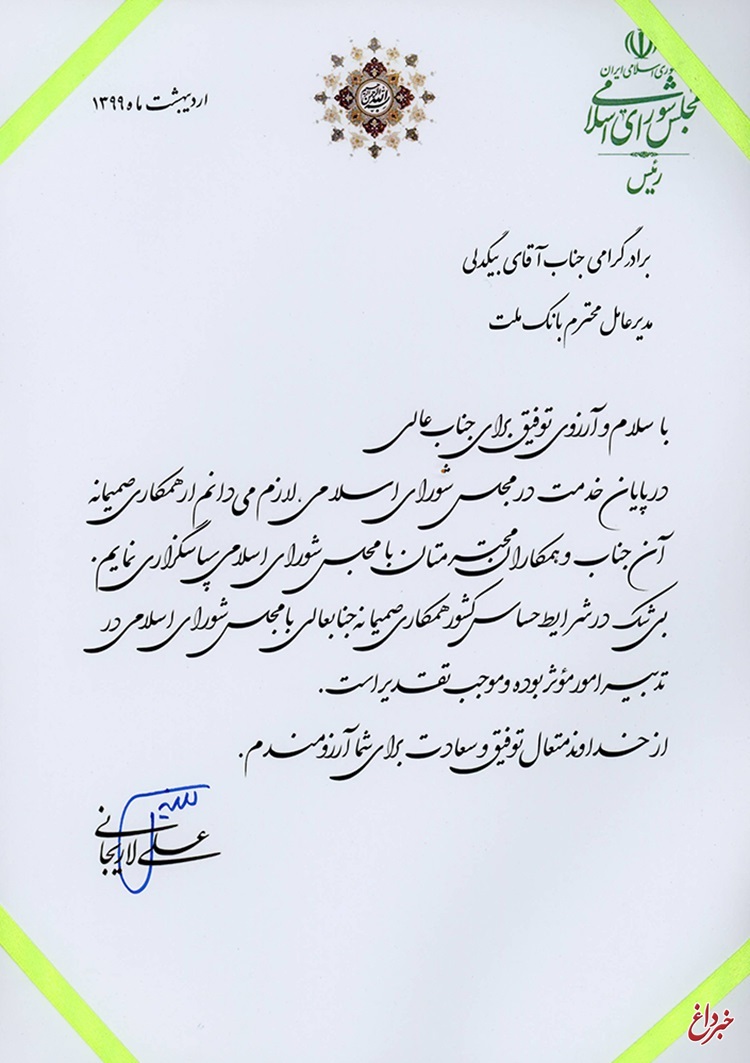 جمهوری اسلامی ایران
مجلس شورای اسلامی
رئیس
اردیبهشت ماه ۱۳۹۹
برادر گرامی جناب آقای بیگدلی
مدیرعامل محترم بانک ملت
با سلام و آرزوی توفیق برای جناب عالی
در پایان خدمت در مجلس شورای اسلامی لازم می دانم از همکاری صمیمانه
آن جناب و همکاران محترمتان با مجلس شورای اسلامی سپاسگزاری نمایم.
بی شک در شرایط حساس کشور همکاری صمیمانه جنابعالی با مجلس شورای اسلامی در
تدبیر امور مؤثر بوده و موجب تقدیر است.
از خداوند متعال توفیق و سعادت برای شما آرزومندم.
علی لاریجانی
خبرداغ